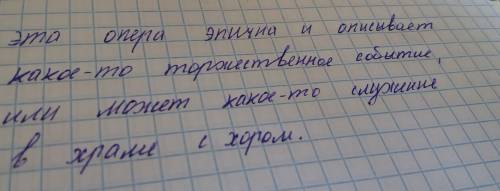 эта опера эпична и описывает
какое-то торжественное событие,
или может какое-то служение
в храме с хором.